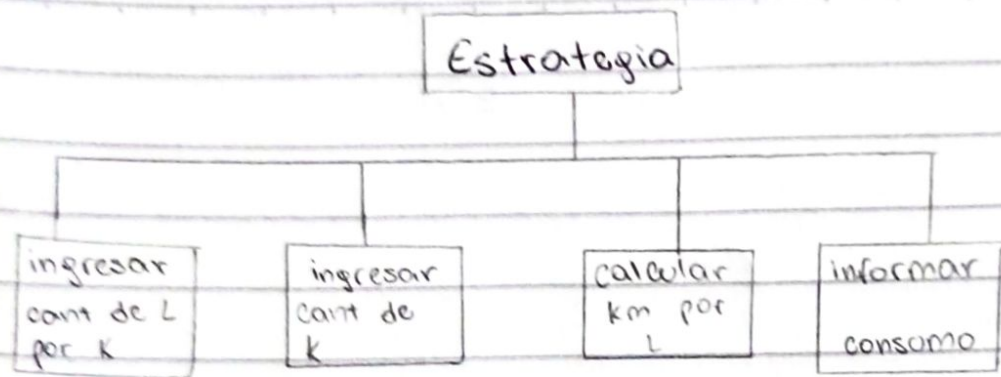 Estrategia
ingresar
cant de L
por K
ingresar
cant de
K
calcular
km por
L
informar
consumo